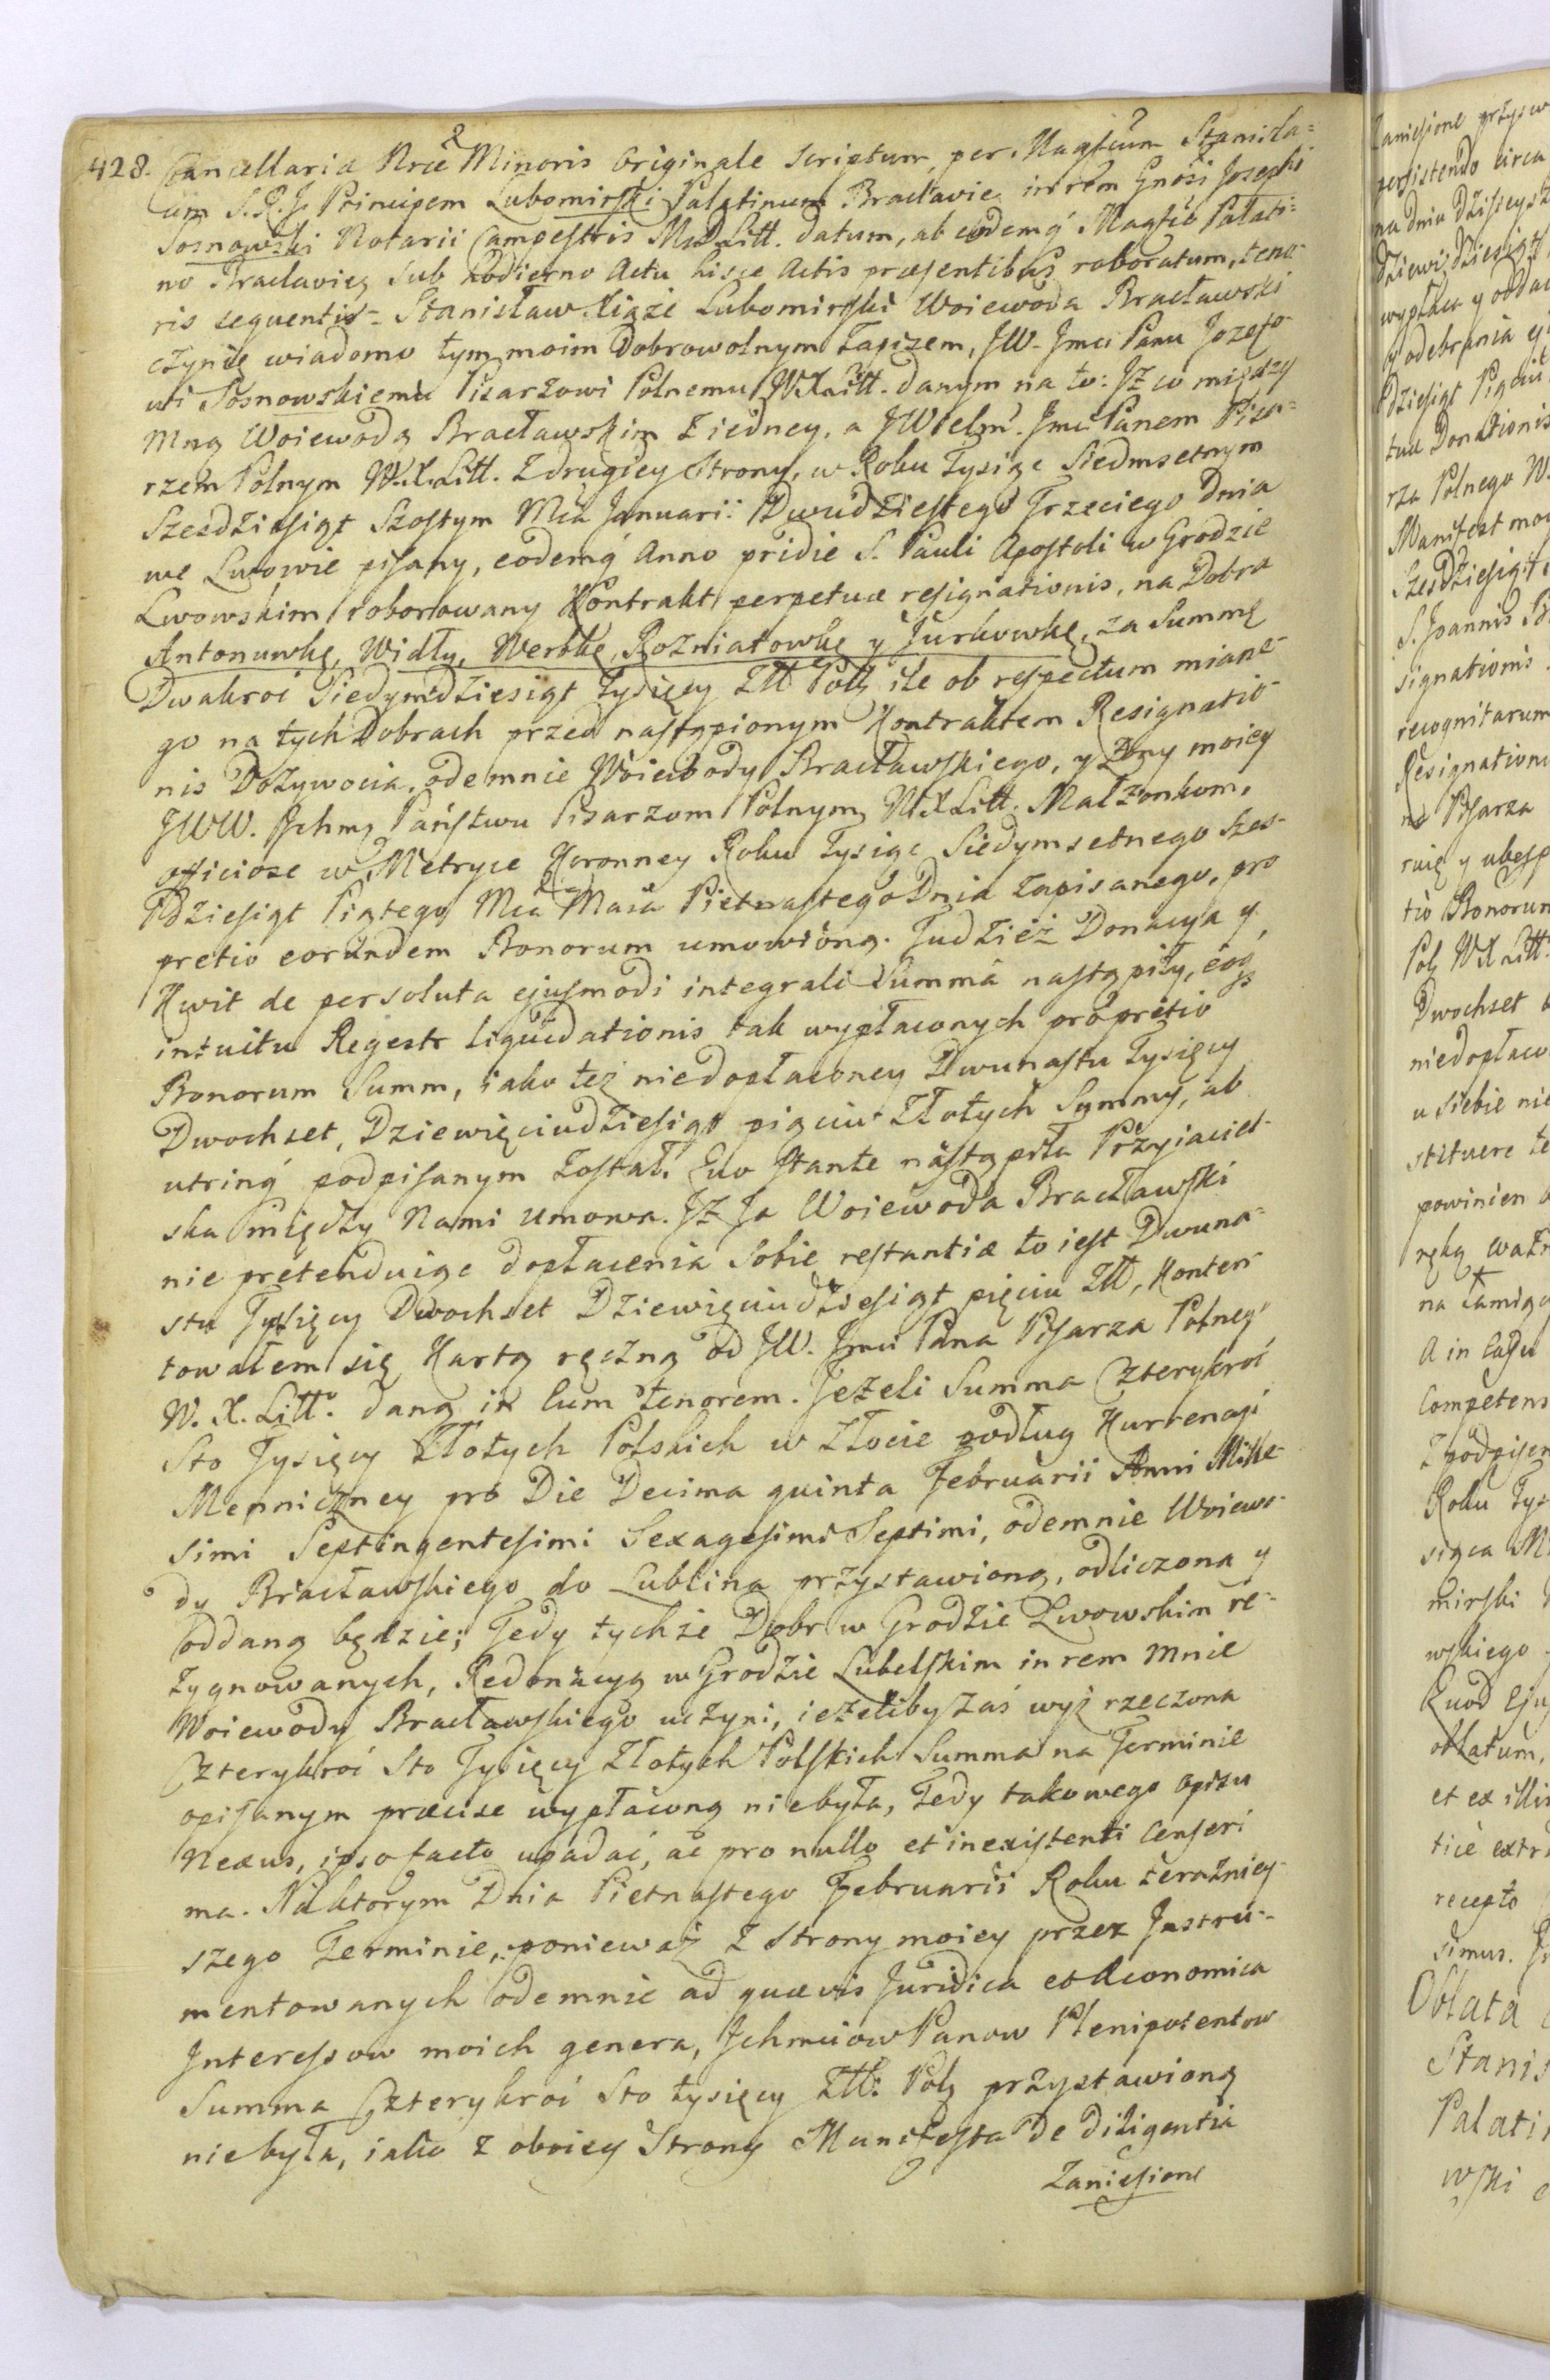 428. Cancellariæ Nræ Minoris Originale Scriptum, per Magfcum Stanisla=
um S. R. J. Principem Lubomirski Palatinum Braclaviæ in rem Gnosi Josephi
Sosnowski Notarii Campestris M. D. Litt. datum, ab eodemq Magfco Palati=
no Braclaviey sub hodierno Actu hisce Actis præsentibus roboratum, teno=
ris sequentis= Stanisław Xiąże Lubomirski Woiewoda Bracławski
czynię wiadomo tym moim Dobrowolnym Zapisem, JW. Jmci Panu Jozefo=
wi Sosnowskiemu Pisarzowi Polnemu W. X. Litt. danym na to: Jż co między
mną Woiewodą Bracławskim z iedney, a JWielm. Jmci Panem Pisa=
rzem Polnym W. X. Litt. z drugiey Strony, w Roku Tysiąc Siedmsetnym
Szesdziesiąt Szostym Mca Januarii Dwudziestego Trzeciego Dnia
we Lwowie pisany, eodemq Anno pridie S. Pauli Apostoli w Grodzie
Lwowskim roborowany Kontrakt perpetuæ resignationis, na Dobra
Antonuwkę, Widły, Werbkę, Rozniatowkę y Jurkowkę, za Summę
Dwakroć Siedymdziesiąt Tysięcy Złł Polg ile ob respectum miane=
go na tych Dobrach przed nastąpionym Kontraktem Resignatio=
nis Dożywocia, odemnie Woiewody Bracławskiego, y Żony moiey
JWW. Jchmg Państwu Pisarzom Polnym W. X. Litt. Małżonkom,
officiose w Metryce Koronney Roku Tysiąc Siedymsetnego Szes=
dziesiąt Piątego Mca Maia Pietnastego Dnia zapisanego, pro
pretio eorundem Bonorum umowioną. Tudzież Donacya y
Kwit de persoluta ejusmodi integrali Summa nastąpiły, eoq
intuitu Regestr liquidationis tak wypłaconych pro pretio
Bonorum Summ, iako też niedopłaconey Dwunastu Tysięcy
Dwochset, Dziewięciudziesiąt pięciu Złotych Summy, ab
utrinq podpisanym został. Quo stante nastąpiła Przyiaciel=
ska między Nami umowa. Jż Ja Woiewoda Bracławski
nie pretenduiąc dopłacenia sobie restantiæ to iest Dwuna=
stu Tysięcy Dwochset Dziewięciudziesiąt pięciu Złł, Konten=
towałem się Kartą ręczną od JW. Jmci Pana Pisarza Polnego
W. X. Litt. daną in eum tenorem. Jeżeli Summa Czterykroć
Sto Tysięcy Złotych Polskich w złocie podług Kurrencyi
Menniczney pro Die Decima quinta Februarii Anni Mille=
simi Septingentesimi Sexagesimi Septimi, odemnie Woiewo=
dy Bracławskiego do Lublina przystawiona, odliczona y
oddaną będzie; Tedy tychże Dobr w Grodzie Lwowskim re=
zygnowanych, Redonacyą w Grodzie Lubelskim in rem mnie
Woiewody Bracławskiego uczyni, ieżeliby zaś wyż rzeczona
Czterykroć Sto Tysięcy Złotych Polskich Summa na Terminie
opisanym præcise wypłaconą niebyła, Tedy takowego opisu
Nexus, ipso facto upadać, ac pro nullo et inexistenti censeri
ma. Na ktorym Dnia Pietnastego Februarii Roku teraźniey=
szego Terminie, ponieważ z Strony moiey przez Jnstru=
mentowanych odemnie ad quævis Juridica et Œconomica
Jnteressow moich genera, Jchmciow Panow Plenipotentow
Summa Czterykroć Sto tysięcy Złł: Polg przystawioną
niebyła, iako z oboiey Strony Manifesta de diligentia
Zaniesione
Zaniesione przysw
persistendo circa
na dniu dzisieysz
Dziewiędziesiąt
wypłacę y oddac
y odebrania
dziesiąt Pięciu
tua Donationis
rza Polnego W.
Manifest
Szesdziesiąt
S. Joannis
signationis
recognitarum
Resignation
Pisarza
ruię y
Bonorum
Polg W X Litt.
Dwochset
niedopłaco
u siebie nie
stituere te
powinien
ręką
A in casu
Competens
z podpisem
Roku Tys
siąca M
mirski
wskiego
Quod Ejus
oblatum,
et ex
extr
recepto
simus.
Oblata
Stanis
Palati
wski